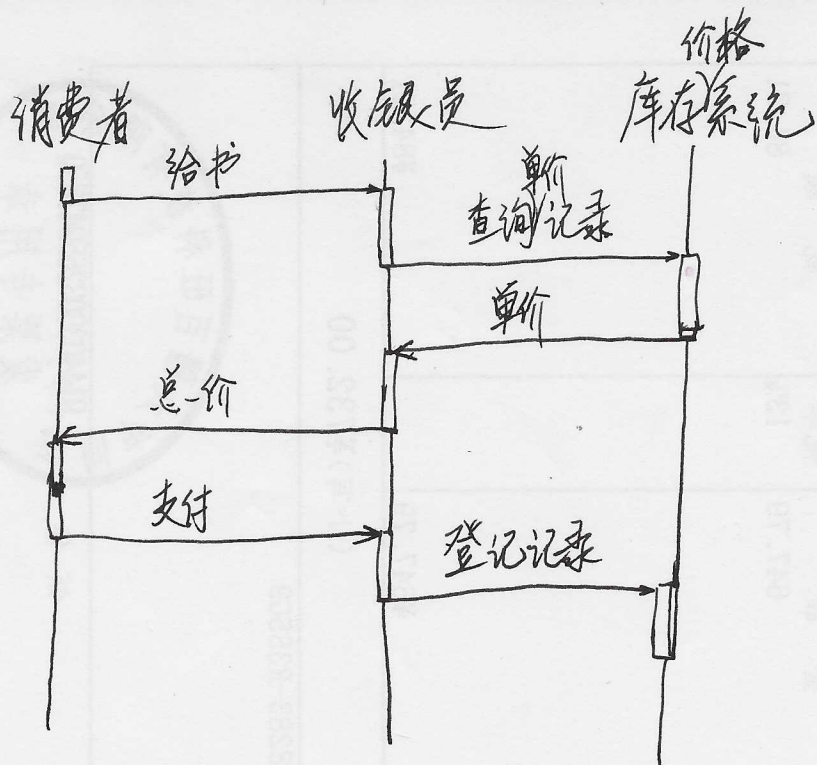 价格
消费者
收银员
库存系统
给书
单价
查询记录
单价
总价
支付
登记记录